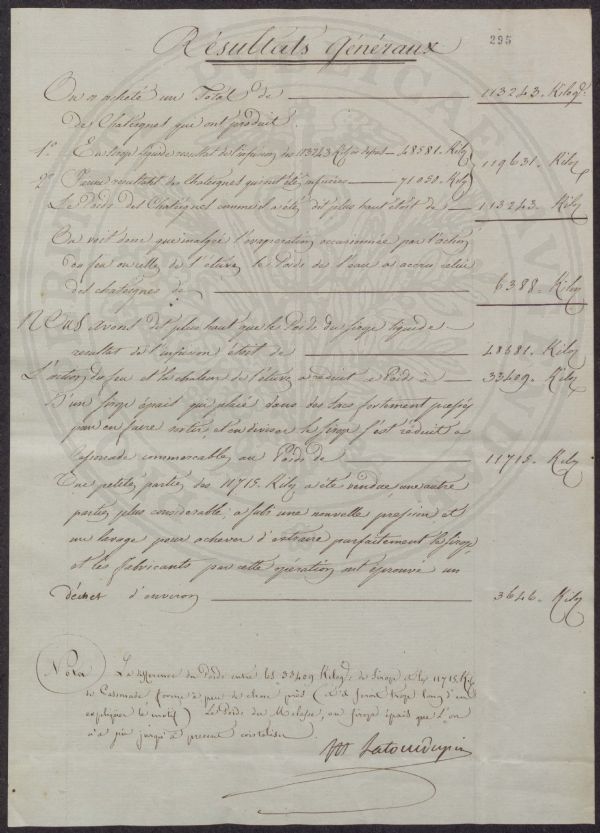 Résultats Généraux
295
On a acheté un Total de 113243. Kilog.
de Chateignes qui ont produit
1° En sirop liquide resultat de l'infusion des 113243 Kil 48581. Kilog
119631. Kilog
2° resultant des Chateignes qui ont été infusées 71050. Kilog
Le Poids des Chateignes comme il a été dit plus haut étoit de 113243. Kilog
On voit donc que malgré l'évaporation occasionnée par l'action
du feu ou celle de l'étuve, le Poids de l'eau a accru celui
des chateignes de 6388. Kilog
Nous avons dit plus haut que le Poids du sirop liquide
resultat de l'infusion étoit de 48581. Kilog
L'action du feu et la chaleur de l'étuve a reduit ce Poids à 33409. Kilog
D'un sirop épait qui placé dans des sacs fortement pressés
pour en faire sortir et en diviser le sirop s'est réduit à
Cassonade commercable au Poids de 11715. Kilog
Une petite partie des 11715. Kilog a été vendue, une autre
partie plus considerable, a subi une nouvelle pression et
un lavage pour achever d'extraire parfaitement le sirop
et les fabricants par cette opération ont éprouvé un
déchet d'environ 3646. Kilog
Nota La difference du Poids entre les 33409 Kilog. de Sirop et les 11715. Kil
de Cassonade forme à peu de chose près (il seroit trop long d'en
expliquer le motif) Le Poids du Melasse, ou sirop épais que l'on
n'a pu jusqu'à present cristaliser.
Latourdupin